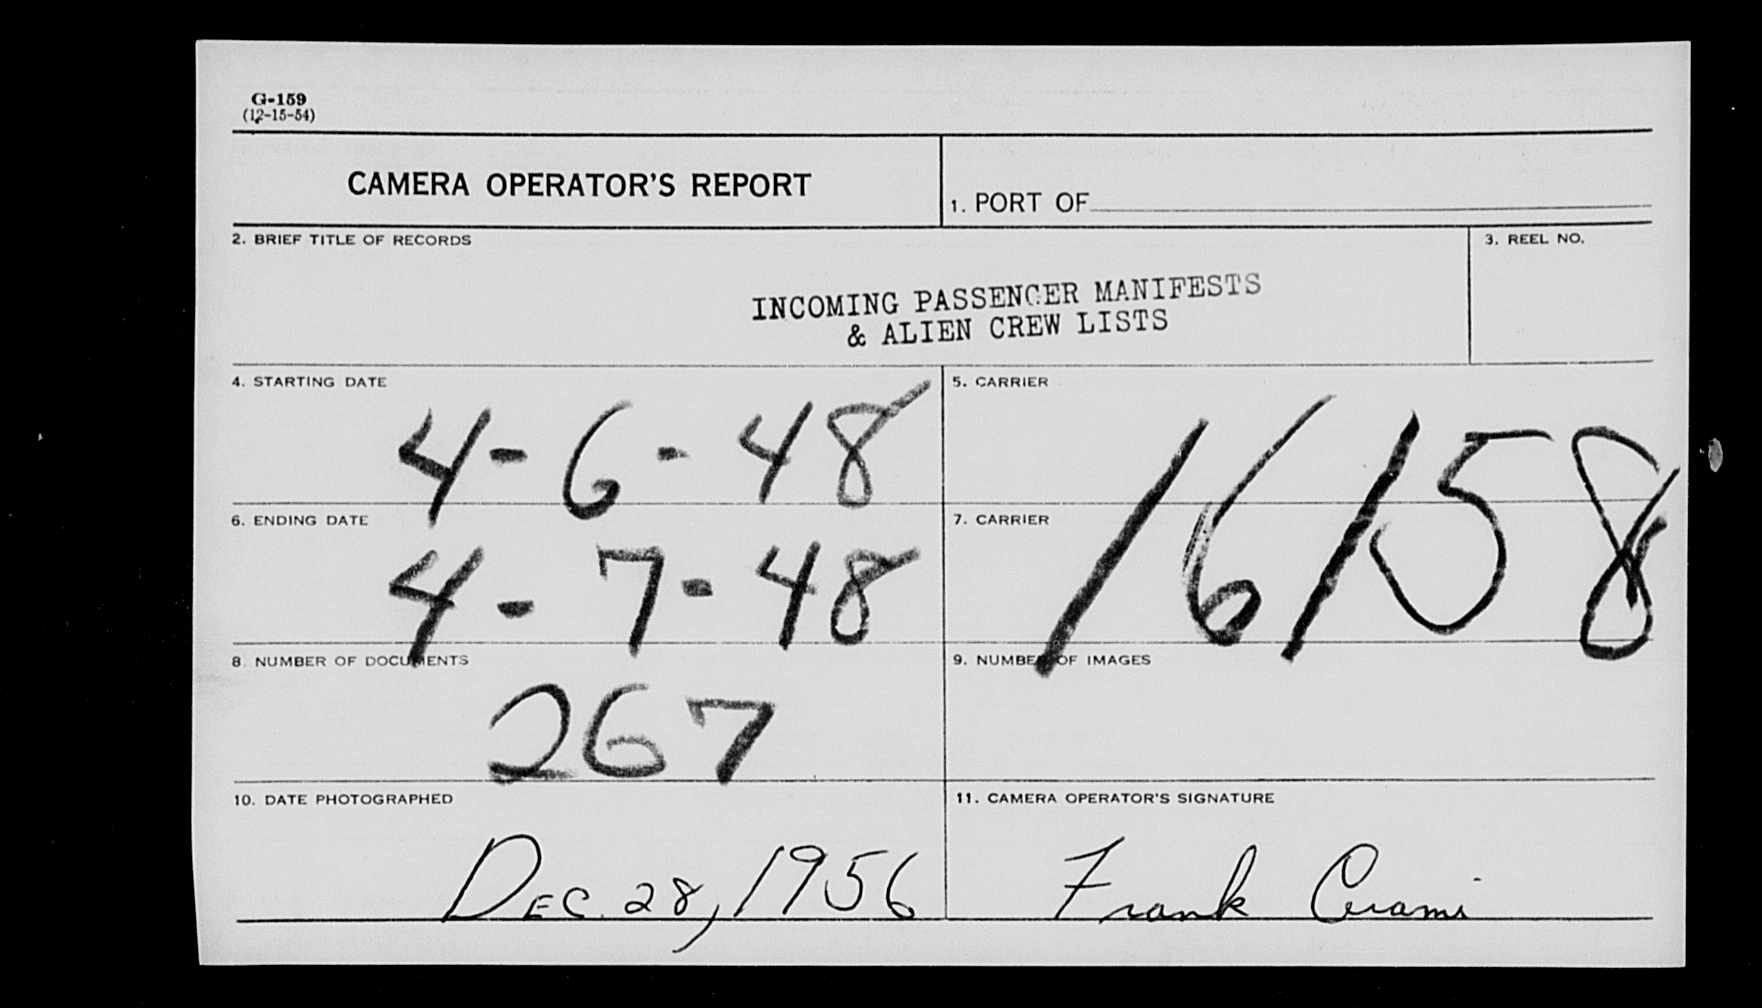 G-159
(12-15-54)
CAMERA OPERATOR'S REPORT
1. PORT OF
2. BRIEF TITLE OF RECORDS
3. REEL NO.
INCOMING PASSENGER MANIFESTS
& ALIEN CREW LISTS
4. STARTING DATE
4-6-48
5. CARRIER
16158
6. ENDING DATE
4-7-48
7. CARRIER
8. NUMBER OF DOCUMENTS
267
9. NUMBER OF IMAGES
10. DATE PHOTOGRAPHED
DEC. 28, 1956
11. CAMERA OPERATOR'S SIGNATURE
Frank Cerami